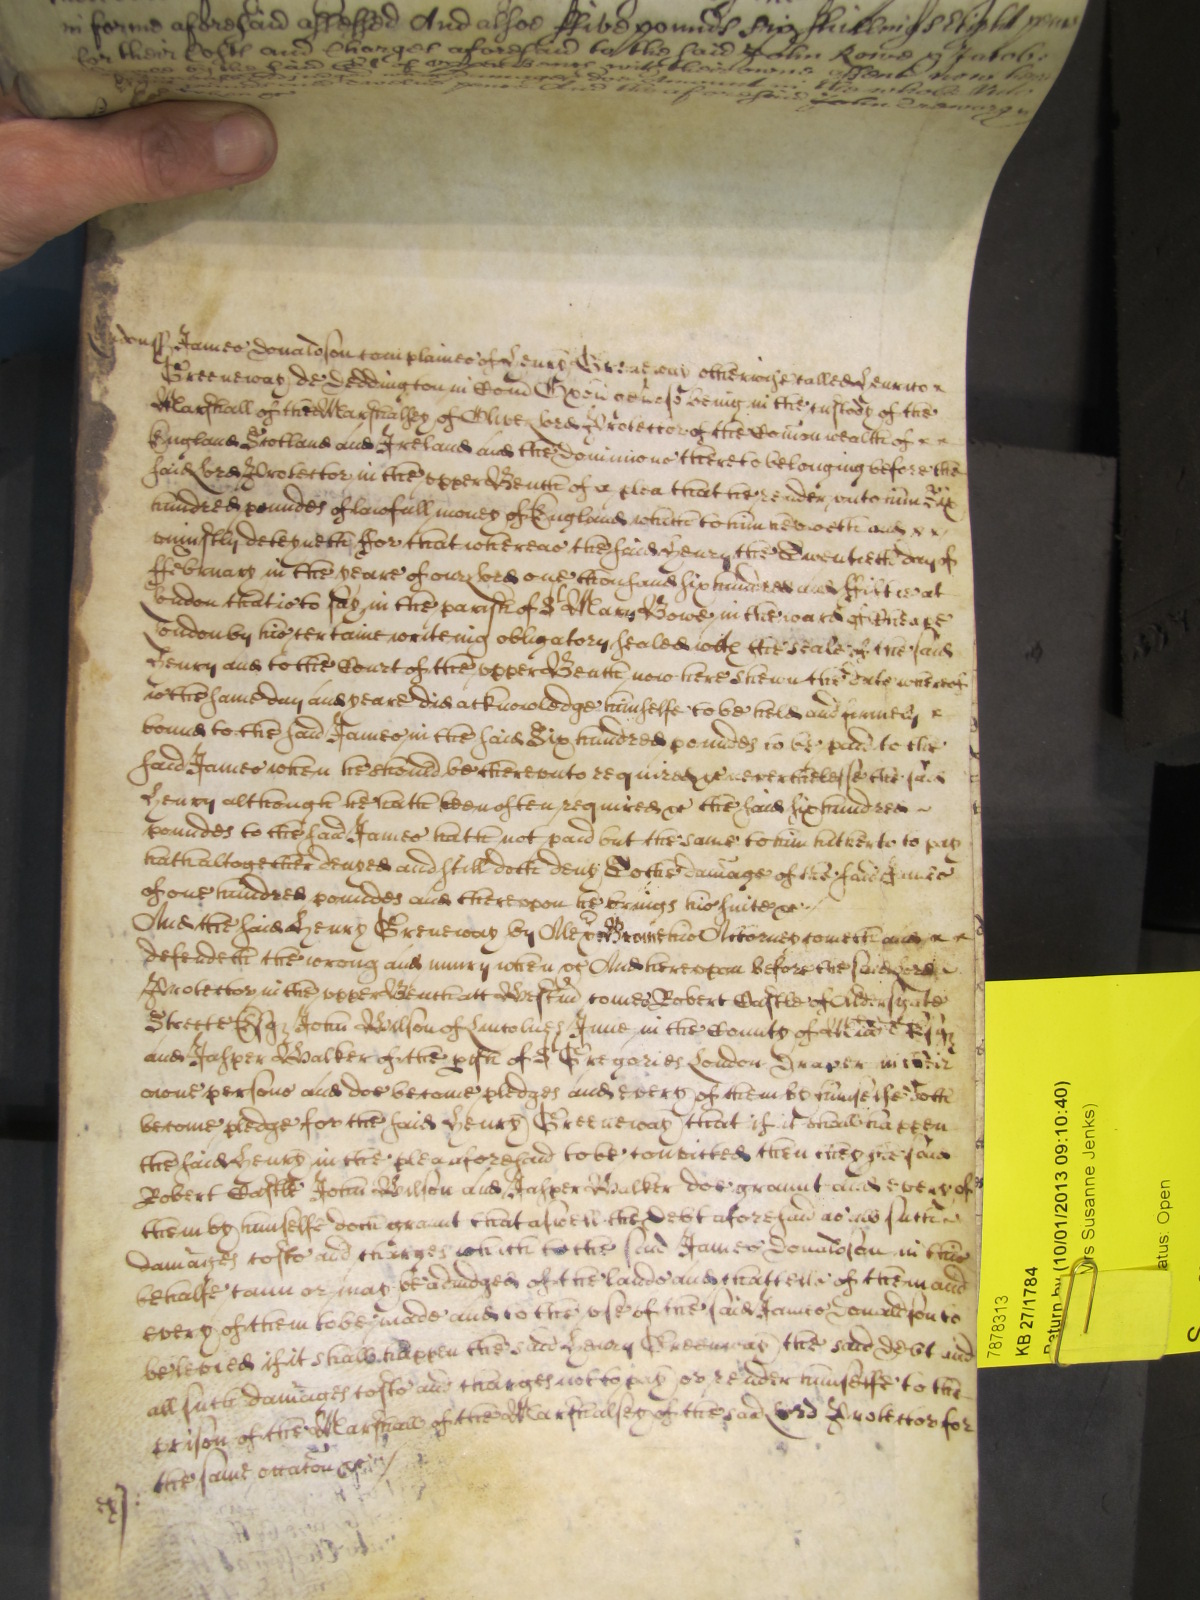 in forme aforesaid assessed And alsoe ffive pounds six shillings Eight pence
for their Costs and Charges aforesaid to the said John
London ss James Donaldson complaines of Henry Greneway otherwise called Henrico
Greeneway de Deddington in Com̄ Oxon̄ being in the custody of the
Marshall of the Marshalsey of Oliver Lord Protector of the Com̄onwealth of
England Scotland and Ireland and the dominions thereto belonging before the
said Lord Protector in the upper Bench of a plea that he render unto him Six
hundred poundes of lawfull money of England which to him he oweth and
uniustly deteyneth ffor that whereas the said Henry the Twentieth day of
ffebruary in the yeare of our Lord one thousand six hundred and ffiftie at
London that is to say in the parish of St Mary Bowe in the ward of Cheape
London by his certaine writeing obligatory sealed with the seale of the said
Henry and to the Court of the upper Bench now here shewn the date whereof
is the same day and yeare did acknowledge himselfe to be held and firmely
bound to the said James in the said Six hundred poundes to be paid to the
said James when he should be thereunto required &c neverthelesse the said
Henry although he hath been often required &c the said six hundred
poundes to the said James hath not paid but the same to him hitherto to pay
hath altogether denyed and still doth deny To the damage of the said James
of one hundred poundes and thereupon he brings his suite &c
And the said Henry Greneway by his Attorney cometh and
defendeth the wrong and iniury when &c And hereupon before the said Lord
Protector in the upper Bench att Westm̄ comes Robert Castle of Aldersgate
Streete Esqr John Wilson of Lincolnes Inne in the County of Midd Esqr
and Jasper Walker of the pish of St Gregories London Draper in their
owne persons and doe become pledges and every of them by himselfe doth
become pledge for the said Henry Greeneway that if it shall happen
the said Henry in the plea aforesaid to be convicted then they the said
Robert Castle John Wilson and Jasper Walker doe graunt and every of
them by himselfe doth graunt that aswell the debt aforesaid as all such
damages costs and charges which to the said James Donaldson in this
behalfe shall or may be adiudged of the lands and chattells of them and
every of them to be made and to the use of the said James Donaldson to
be levied if it shall happen the said Henry Greeneway the said debt and
all such damages costs and charges not to pay or render himselfe to the
prison of the Marshall of the Marshalsey of the said Lord Protector for
the same occac̄on &c
7878313
KB 27/1784
Return by (10/01/2013 09:10:40)
Mrs Susanne Jenks)
atus: Open